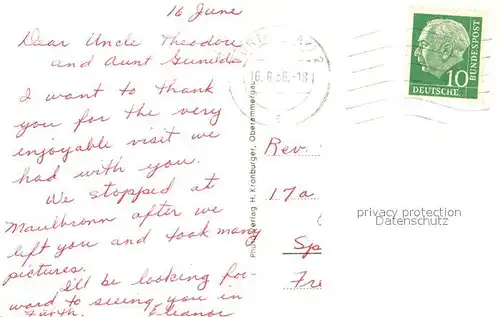 16 June
Dear Uncle Theodore
and Aunt Gunilda,
I want to thank
you for the very
enjoyable visit we
had with you.
We stopped at
Maulbronn after we
left you and took many
pictures.
I'll be looking for-
ward to seeing you in
Fürth. Eleanor
Photoverlag H. Kronburger, Oberammergau
16.6.56.-18
10
DEUTSCHE
BUNDESPOST
Rev.
17a
Sp
Fre
privacy protection
Datenschutz